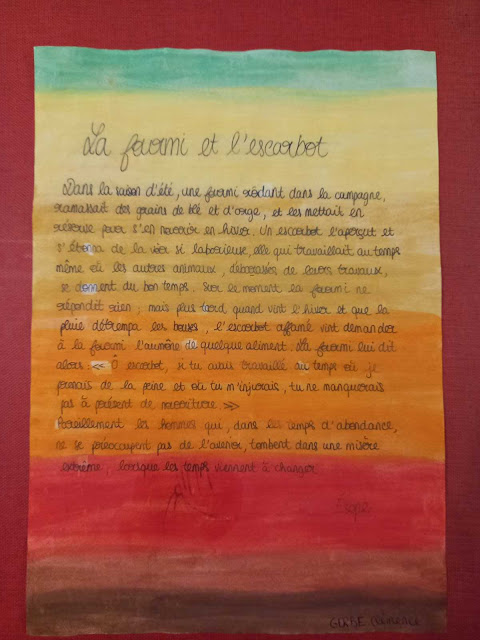 La fourmi et l'escarbot
Dans la saison d'été, une fourmi rôdant dans la campagne,
ramassait des grains de blé et d'orge, et les mettait en
réserve pour s'en nourrir en hiver. Un escarbot l'aperçut et
s'étonna de la voir si laborieuse, elle qui travaillait au temps
même où les autres animaux, débarassés de leurs travaux,
se donnent du bon temps. Sur le moment la fourmi ne
répondit rien ; mais plus tard, quand vint l'hiver et que la
pluie détrempa les bouses, l'escarbot affamé vint demander
à la fourmi l'aumône de quelque aliment. La fourmi lui dit
alors : « Ô escarbot, si tu avais travaillé au temps où je
prenais de la peine et où tu m'injuriais, tu ne manquerais
pas à présent de nourriture. »
Pareillement les hommes qui, dans les temps d'abondance,
ne se préoccupent pas de l'avenir, tombent dans une misère
extrême, lorsque les temps viennent à changer.
Esope
Clémence